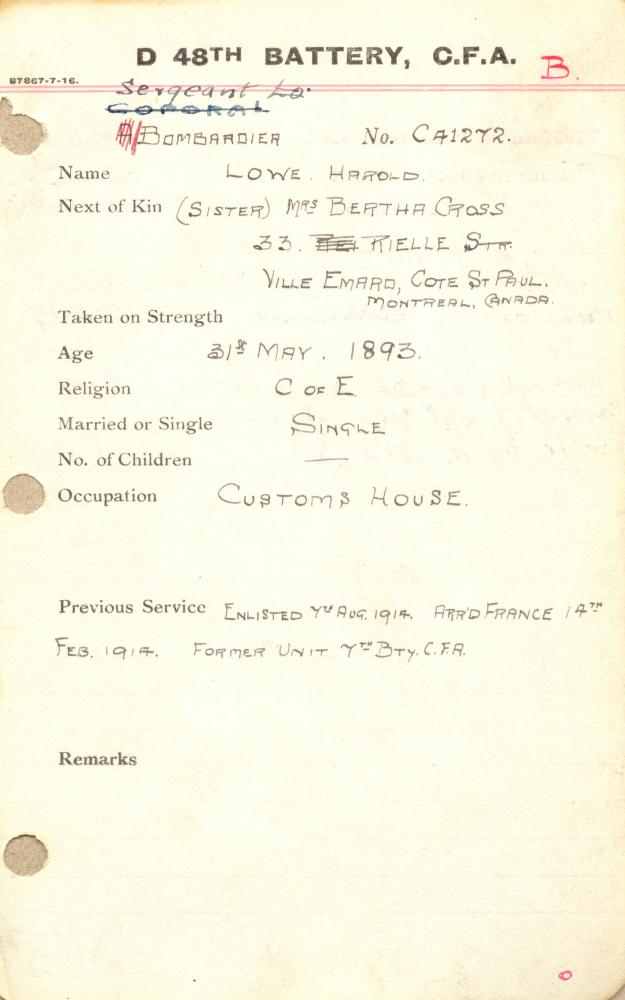 D 48TH BATTERY, C.F.A.
B.
87867-7-16.
Sergeant
COPORAL
A/BOMBARDIER No. CA1272.
Name LOWE. HAROLD.
Next of Kin (SISTER) MRS BERTHA CROSS
33. RIELLE STR.
VILLE EMARD, COTE ST PAUL.
MONTREAL, CANADA.
Taken on Strength
Age 31st MAY. 1893.
Religion C OF E.
Married or Single SINGLE
No. of Children —
Occupation CUSTOMS HOUSE.
Previous Service ENLISTED 7TH AUG. 1914. ARR'D FRANCE 14TH
FEB. 1914. FORMER UNIT 7TH BTY. C.F.A.
Remarks